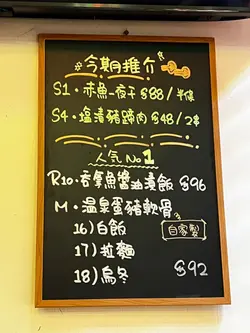 今期推介
S1・赤魚一夜干 $88/半條
S4・塩漬豬頸肉 $48/2串
人気No1
R10・吞拿魚醬油漬飯 $96
M・温泉蛋豬軟骨
自家製
16)白飯
17)拉麵
18)烏冬 $92